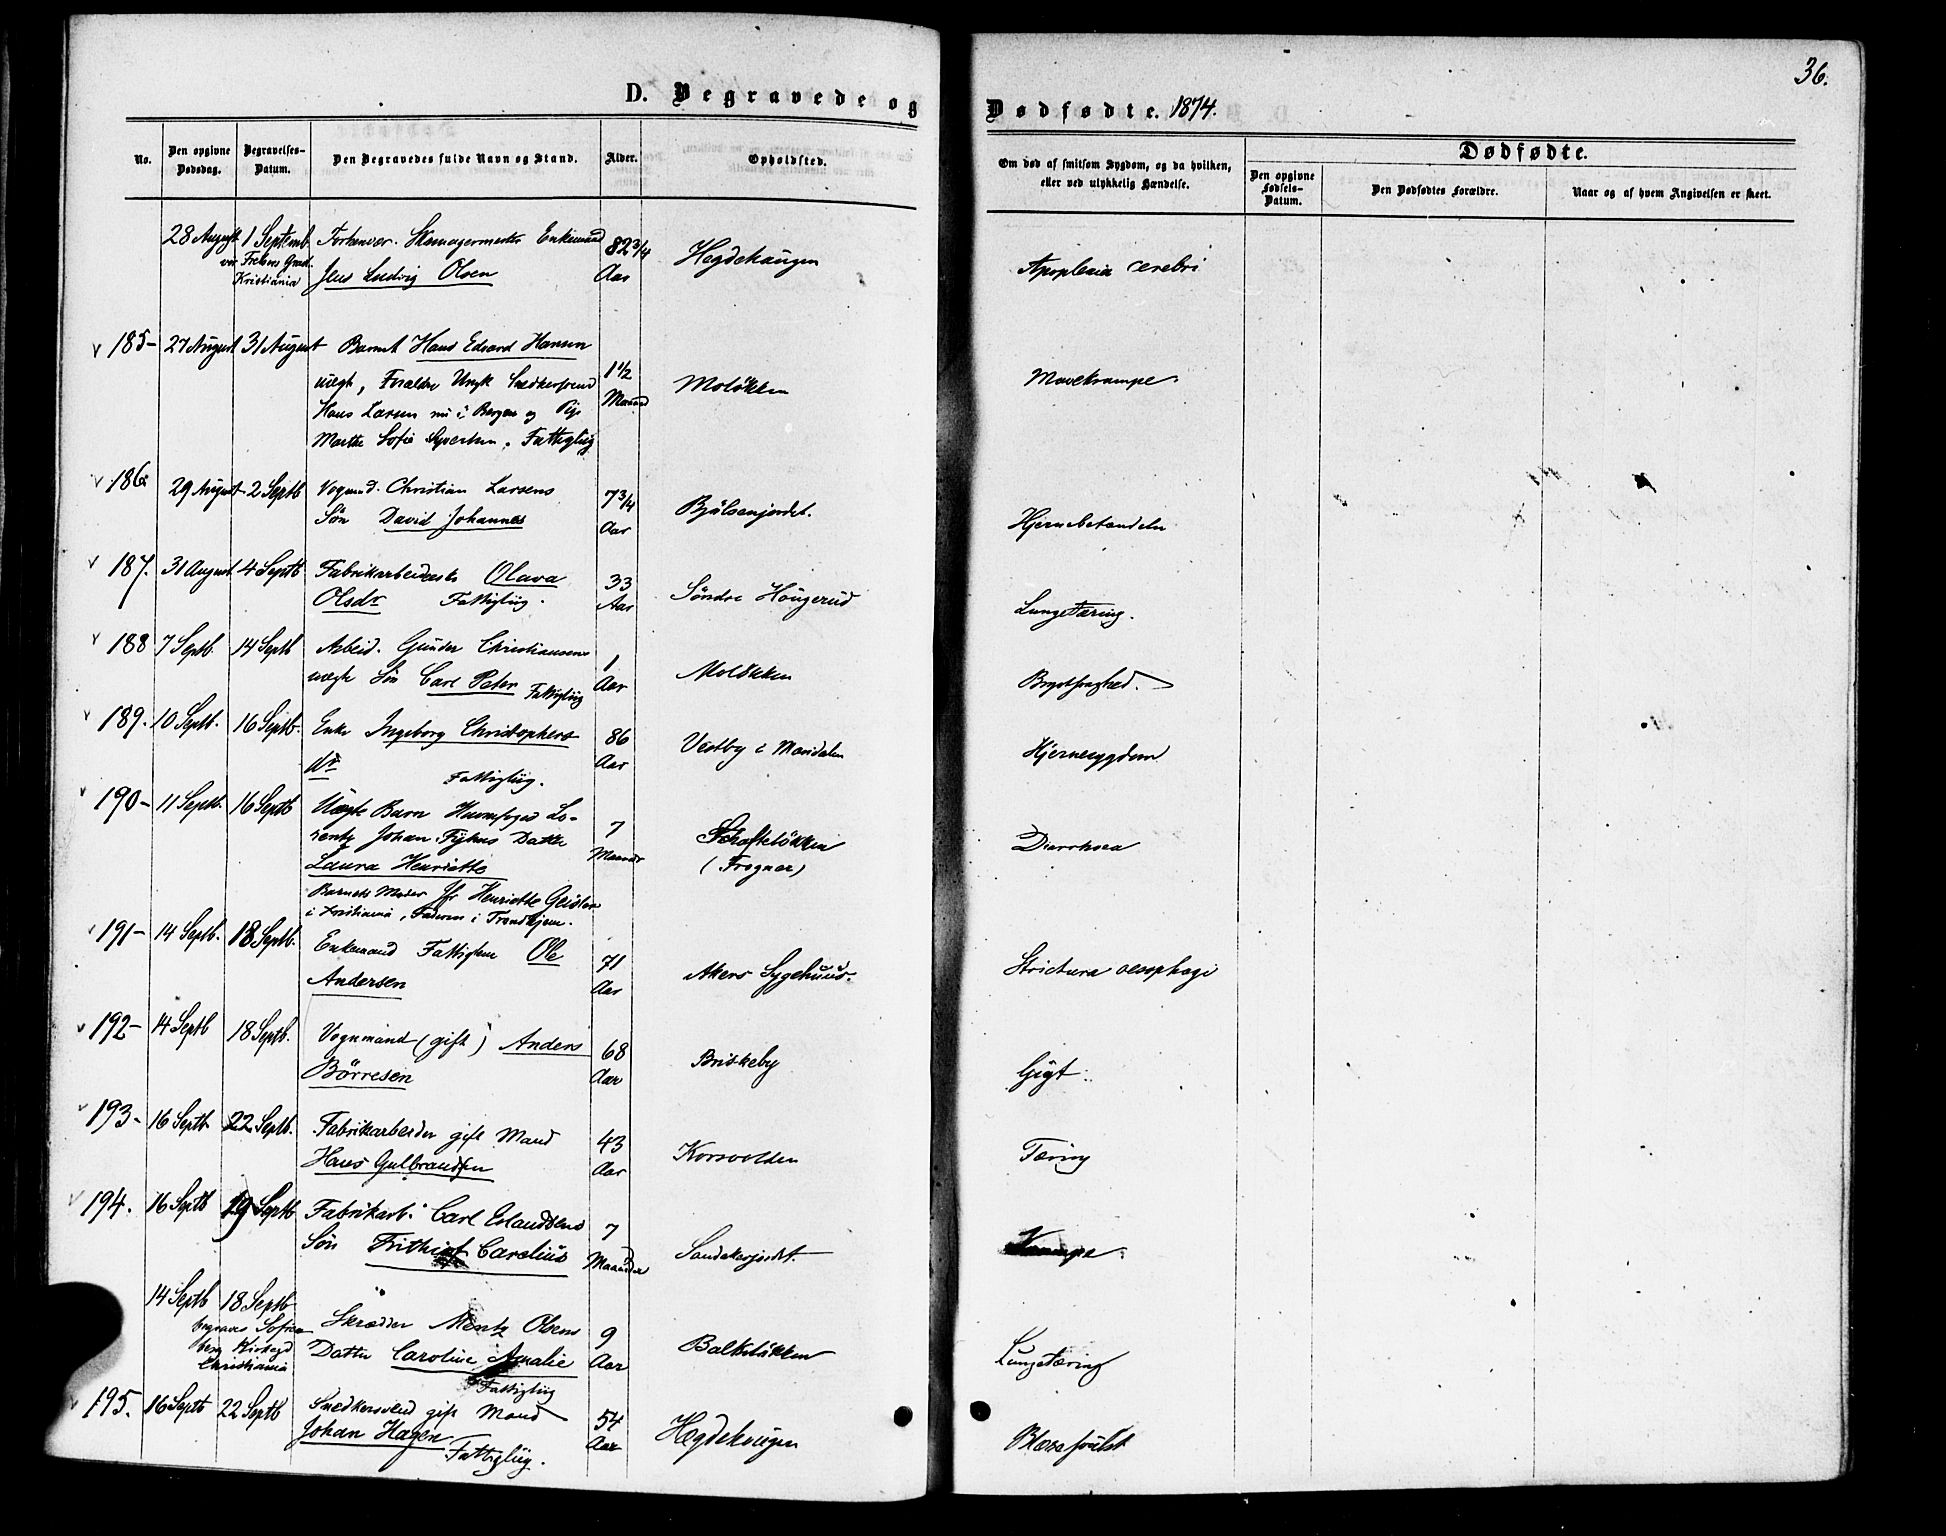 36.
D. Begravede og
Dødfødte. 1874.
No.
Den opgivne Dødsdag.
Begravelses-Datum.
Den Begravedes fulde Navn og Stand.
Alder.
Opholdsted.
Om død af smitsom Sygdom, og da hvilken, eller ved ulykkelig Hændelse.
Dødfødte.
Den opgivne Fødsels-Datum.
Den Dødfødtes Forældre.
Naar og af hvem Angivelsen er skeet.
28 August 1 Septemb. Skomagermester Enkemand 82 3/4 Hegdehaugen Apoplexia cerebri
Vor Frelsers Grav. Kristiania Jens Ludvig Olsen Aar
185- 27 August 31 August Barnet Hans Edvard Hansen
uægt, Forældre Ungk Snedkersvend 1 1/2 Moløkken Mavekrampe
Hans Larsen nu i Bergen og Pige Maaned
Marthe Sofie Syvertsen. Fattiglig
186 29 August 2 Septb Vogmd. Christian Larsens 7 3/4 Bjølsenjordet. Hjernebetændelse
Søn David Johannes Aar
187. 31 August 4 Septb Fabrikarbeiderske Olava 33 Søndre Hougerud Lungetæring.
Olsdr Fattiglig. Aar
188 7 Septb. 14 Septb Arbeid. Gunder Christiansens 1 Moløkken Brystsyghed.
uægte Søn Carl Peter Fattiglig Aar
189. 10 Septb. 16 Septb. Enke Ingeborg Christophers 86 Vestby i Maridalen Hjernesygdom
dr Fattiglig. Aar
190- 11 Septb. 16 Septb Uægte Barn Huusfoged Lo-
rentz Johan Datter 7 Schafteløkken Diarrhoea
Laura Henriette Maaneder (Frogner)
Barnets Moder Jfr Henriette
i Kristiania, Faderen i Trondhjem.
191- 14 Septb. 18 Septb. Enkemand Fattiglem Ole 71 Akers Sygehuus. Strictura oesophagi
Andersen Aar
192- 14 Septb 18 Septb. Vognmand (gift) Anders 68 Briskeby Gigt.
Børresen Aar
193- 16 Septb 22 Septb. Fabrikarbeider gift Mand 43 Korsvolden Tæring
Hans Gulbrandsen Aar
194. 16 Septb 19 Septb Fabrikarb. Carl Erlandsens 7 Sandakerjordet. Krampe
Søn Frithiof Carelius Maaneder
14 Septb 18 Septb Skrædder Mentz Olsens 9 Balkeløkken Lungetæring
begraves Sofien-
berg Kirkegd Datter Caroline Amalie Aar
Christiania Fattiglig
195. 16 Septb 22 Septb Snedkersvend gift Mand 54 Hegdehaugen
Johan Hagen Aar
Fattiglig.